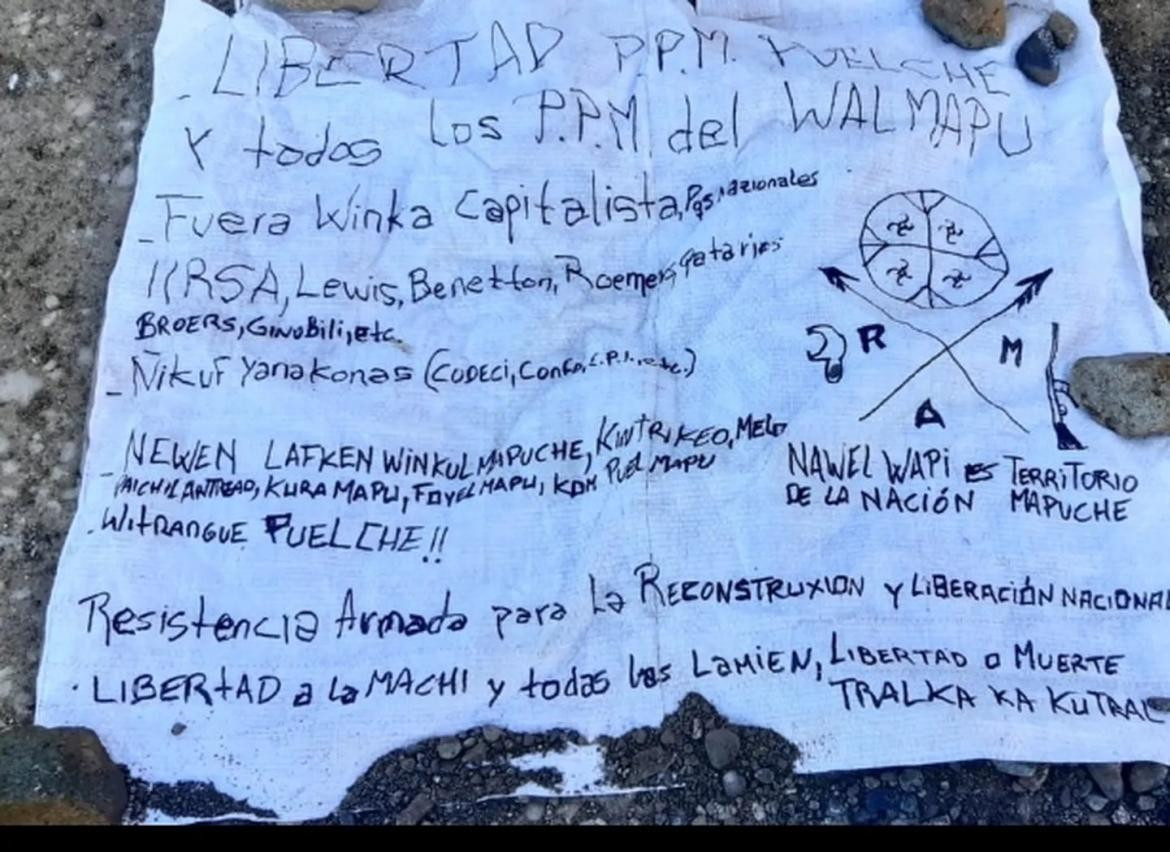 LIBERTAD P.P.M. PUELCHE
Y todos los P.P.M del WALMAPU
_ Fuera Winka Capitalista,
IIRSA, Lewis, Benetton, Roemers, qataries
BROERS, GinoBili, etc.
_ Ñikuf Yanakonas (CODECI, etc.)
_ NEWEN LAFKEN WINKUL MAPUCHE, KINTRIKEO, MELO
PAICHIL ANTREAO, KURA MAPU, FOYEL MAPU, KDH PUEL MAPU
- WITRANGUE PUELCHE!!
R M
A
NAWEL WAPI ES TERRITORIO
DE LA NACIÓN MAPUCHE
Resistencia Armada para La RECONSTRUXION y LIBERACIÓN NACIONAL
· LIBERtAD a la MACHI y todas las LAMIEN, LIBERTAD o MUERTE
TRALKA KA KUTRAL